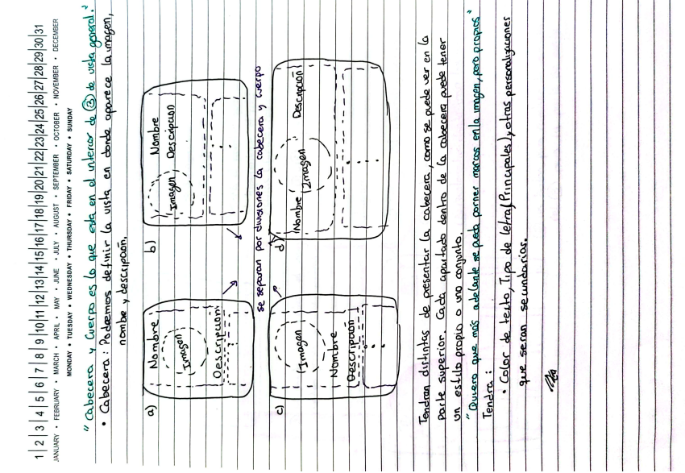 1|2|3|4|5|6|7|8|9|10|11|12|13|14|15|16|17|18|19|20|21|22|23|24|25|26|27|28|29|30|31
JANUARY • FEBRUARY • MARCH • APRIL • MAY • JUNE • JULY • AUGUST • SEPTEMBER • OCTOBER • NOVEMBER • DECEMBER
MONDAY • TUESDAY • WEDNESDAY • THURSDAY • FRIDAY • SATURDAY • SUNDAY
"Cabecera y Cuerpo es lo que esta en el interior de ③ de vista general."
• Cabecera: Podemos definir la vista en donde aparece la imagen,
nombre y descripción.
a)
Nombre
Imagen
Descripcion
b)
Imagen
Nombre
Descripcion
se separan por divisiones la cabecera y cuerpo
c)
Imagen
Nombre
Descripcion
d)
Nombre
Imagen
Descripcion
Tendran distintas de presentar la cabecera, como se puede ver en la
parte superior. Cada apartado dentro de la cabecera puede tener
un estilo propio o uno conjunto.
"Quiero que más adelante se pueda poner marcos en la imagen, pero propios"
Tendra:
• Color de texto, Tipo de letra (Principales), otras personalizaciones
que seran secundarias.